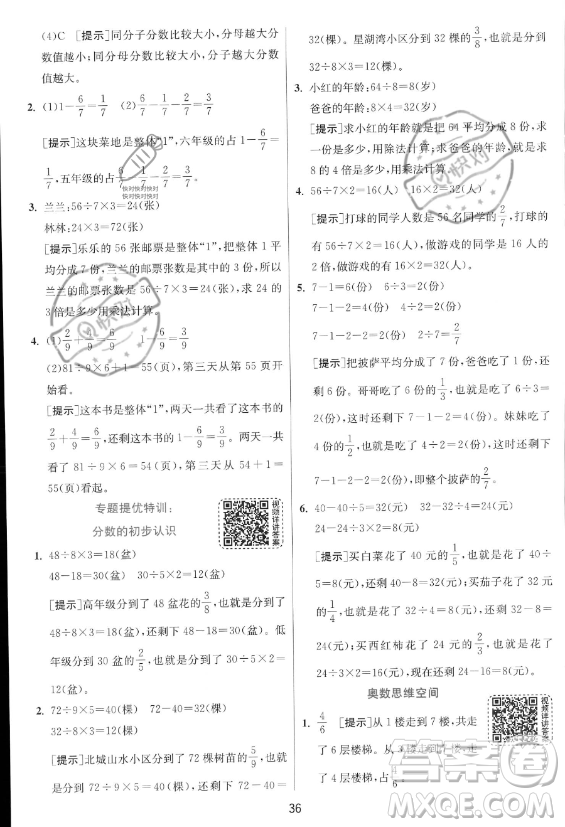 (4)C [提示]同分子分数比较大小,分母越大分
数值越小;同分母分数比较大小,分子越大分数
值越大。
2. (1)1-6/7=1/7 (2)6/7-1/7-2/7=3/7
[提示]这块菜地是整体“1”,六年级的占1-6/7=
1/7,五年级的占6/7-1/7-2/7=3/7。
3. 兰兰:56÷7×3=24(张)
林林:24×3=72(张)
[提示]乐乐的56张邮票是整体“1”,把整体平
均分成7份,兰兰的邮票张数是其中的3份,所以
兰兰的邮票张数是56÷7×3=24(张),求24的
3倍是多少用乘法计算。
4. (1)2/9+4/9=6/9 1-6/9=3/9
(2)81÷9×6+1=55(页),第三天从第55页开
始看。
[提示]这本书是整体“1”,两天一共看了这本书的
2/9+4/9=6/9,还剩这本书的1-6/9=3/9。两天一共
看了81÷9×6=54(页),第三天从54+1=
55(页)看起。
专题提优特训:
分数的初步认识
视频详讲答案
1. 48÷8×3=18(盆)
48-18=30(盆) 30÷5×2=12(盆)
[提示]高年级分到了48盆花的3/8,分到了48÷
8×3=18(盆),还剩下48-18=30(盆)。低
年级分到30盆的2/5,分到30÷5×2=12
(盆)。
2. 72÷9×5=40(棵) 72-40=32(棵)
32÷8×3=12(棵)
[提示]北城山水小区分到了72棵树苗的5/9,分
到了72÷9×5=40(棵),还剩下72-40=
32(棵)。星湖湾小区分到32棵的3/8,分到32÷
8×3=12(棵)。
3. 小红的年龄:64÷8=8(岁)
爸爸的年龄:8×4=32(岁)
[提示]求小红的年龄就是把64平均分成8份,求
一份是多少,用除法计算;求爸爸的年龄就是求
8的4倍是多少,用乘法计算。
4. 56÷7×2=16(人) 16×2=32(人)
[提示]打球的同学人数是56名同学的2/7,打球
的有56÷7×2=16(人),做游戏的同学是16人的
2倍,做游戏的有16×2=32(人)。
5. 7-1=6(份) 6÷3=2(份)
7-1-2=4(份) 4÷2=2(份)
7-1-2-2=2(份) 2/7
[提示]把披萨平均分成了7份,爸爸吃了1份,还
剩6份。哥哥吃了6份的1/3,吃了6÷3=
2(份),这时还剩下7-1-2=4(份)。妹妹吃了
4份的1/2,吃了4÷2=2(份),这时还剩下
7-1-2-2=2(份),即整个披萨的2/7。
6. 40-40÷5=32(元) 32-32÷4=24(元)
24-24÷3×1=16(元)
[提示]买白菜花了40元的1/5,花了40÷5=
8(元),还剩40-8=32(元);买茄子花了32元的
1/4,花了32÷4=8(元),还剩32-8=
24(元);买西红柿花了24元的1/3,花了
24÷3=8(元),还剩24-8=16(元)。
奥数思维空间
视频详讲答案
1. 4/6 [提示]从1楼走到7楼,共走
了6层楼梯。从1楼走到5楼,走
了4层楼梯,占4/6。
36